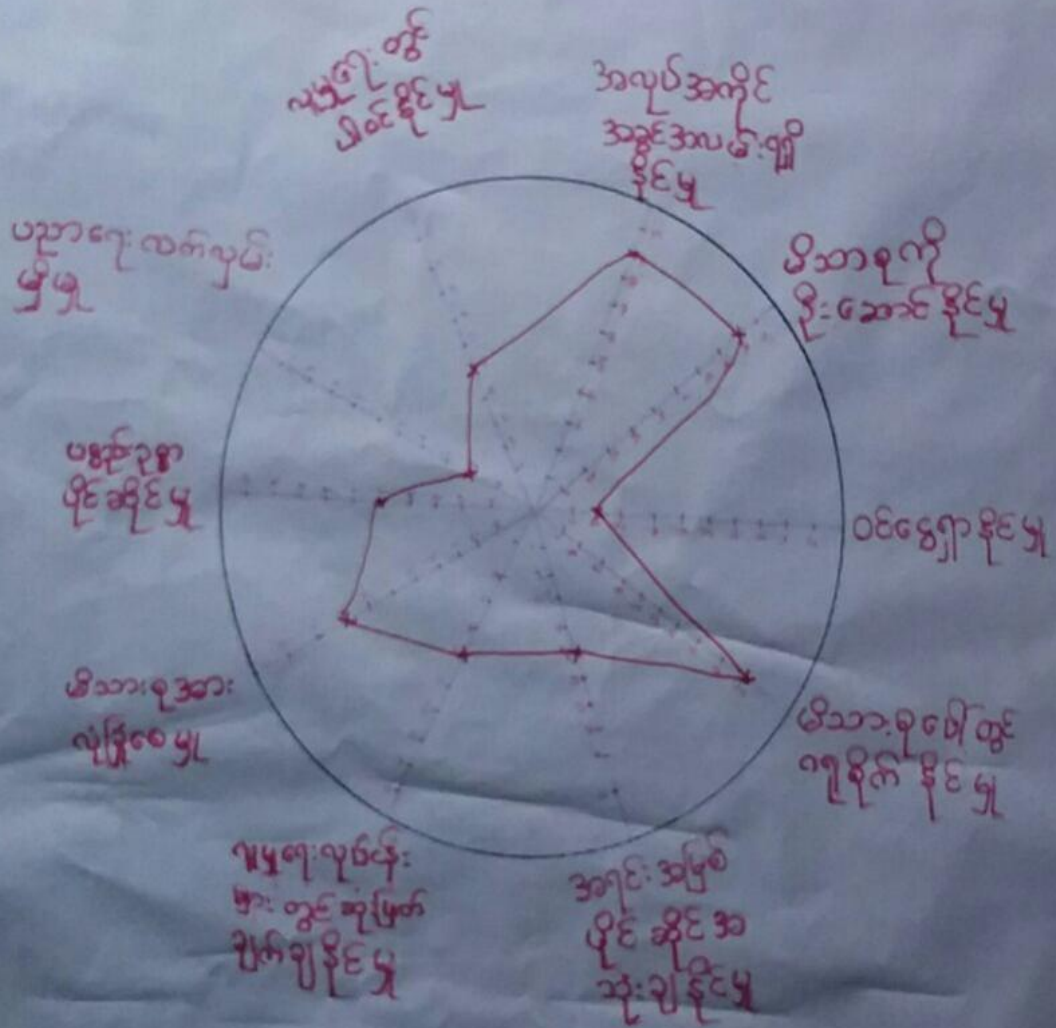 လူမှုရေးတွင်
ပါဝင်နိုင်မှု
အလုပ်အကိုင်
အခွင့်အလမ်းရရှိ
နိုင်မှု
မိသားစုကို
ဦးဆောင်နိုင်မှု
ဝင်ငွေရှာနိုင်မှု
မိသားစုပေါ်တွင်
ဂရုစိုက်နိုင်မှု
အရင်းအမြစ်
ပိုင်ဆိုင်အ
သုံးချနိုင်မှု
လူမှုရေးလုပ်ငန်း
များတွင်ဆုံးဖြတ်
ချက်ချနိုင်မှု
မိသားစုအား
လုံခြုံစေမှု
ပစ္စည်းဥစ္စာ
ပိုင်ဆိုင်မှု
ပညာရေးလက်လှမ်း
မှီမှု